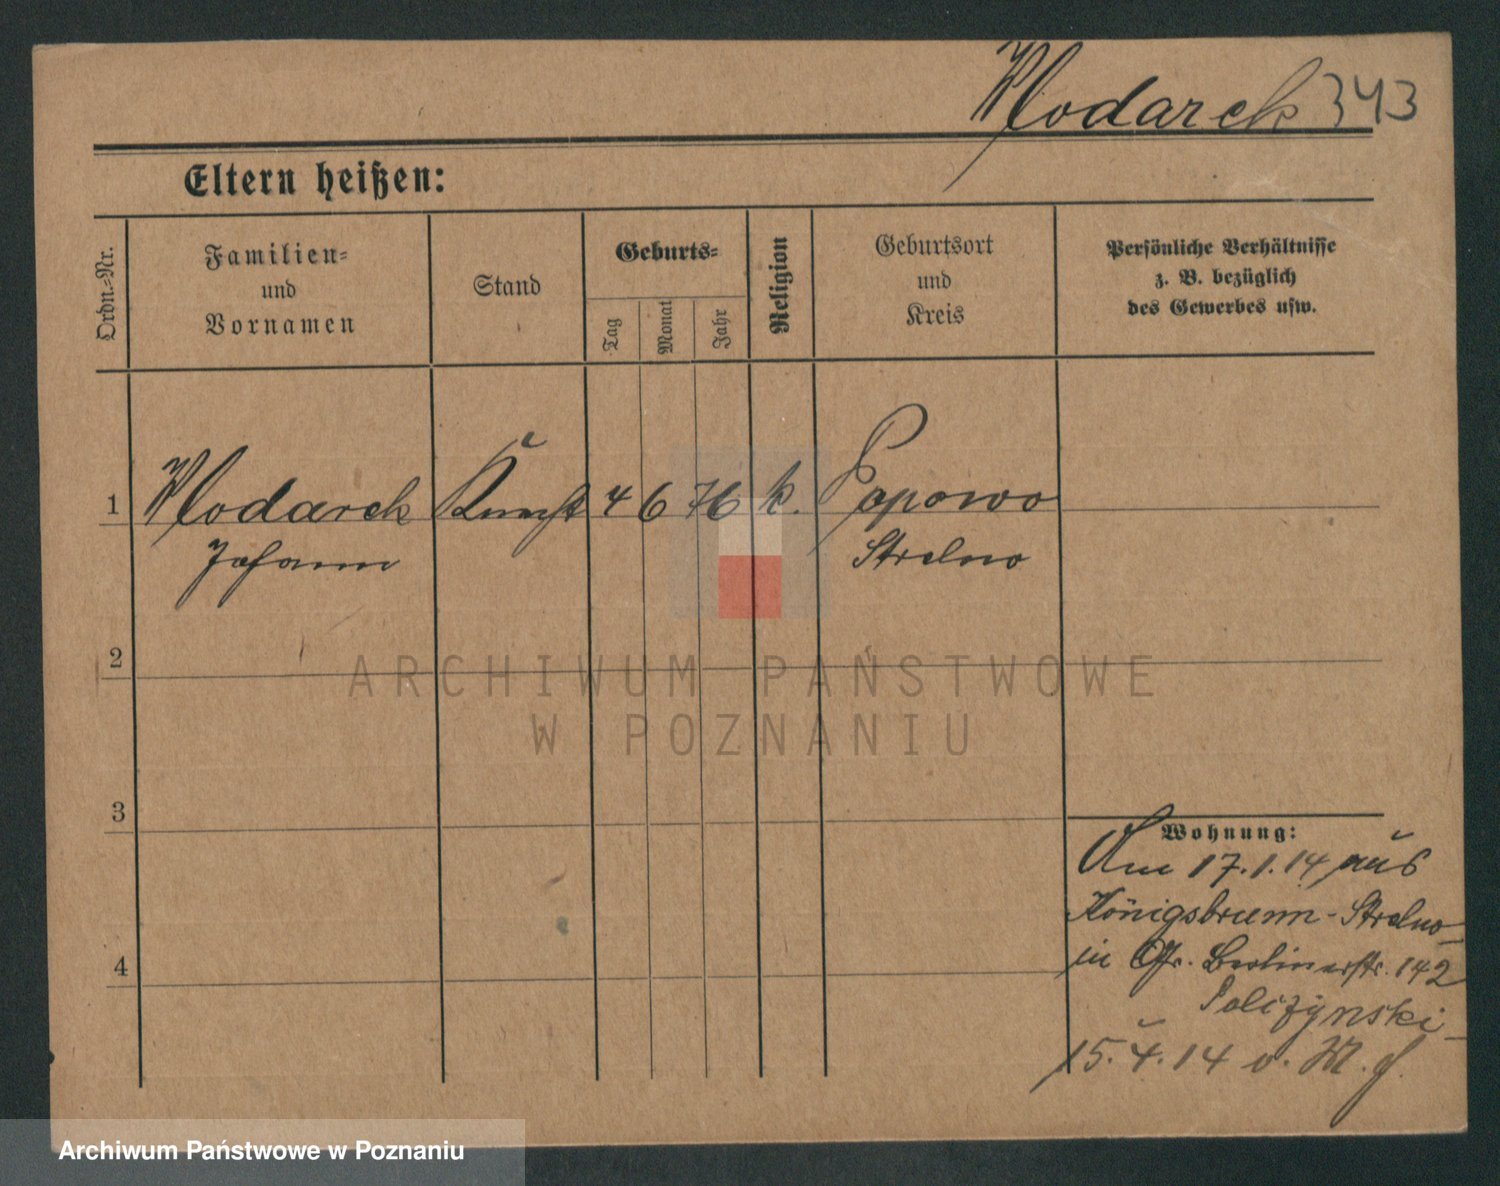 Wlodarek 343
Eltern heißen:
Ordn.=Nr.
Familien=
und
Vornamen
Stand
Geburts=
Tag
Monat
Jahr
Religion
Geburtsort
und
Kreis
Persönliche Verhältnisse
z. B. bezüglich
des Gewerbes usw.
1 Wlodarek 4 6 76 k. Popowo
Johann Strelno
2
ARCHIWUM PAŃSTWOWE
W POZNANIU
3
Wohnung:
Am 17.1.14 aus
Königsbrunn-Strelno
in Berlinerstr. 142
15.4.14 v.
4
Archiwum Państwowe w Poznaniu